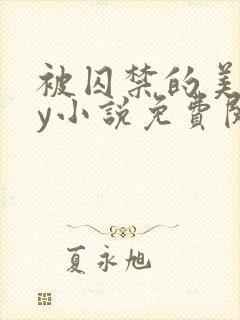 被囚禁的美
y小說免費閱
夏永旭